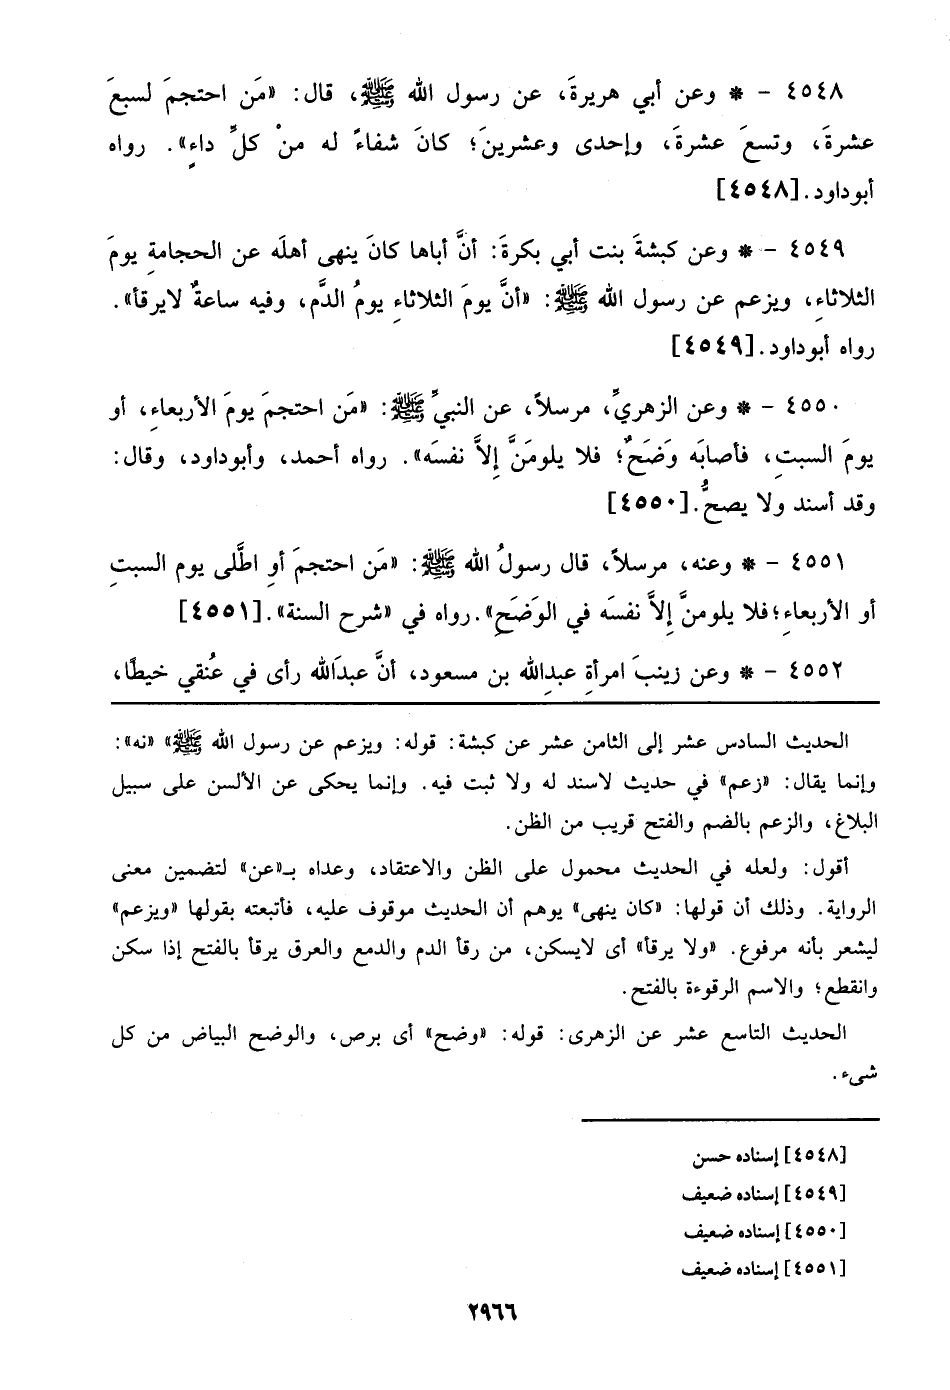 ٤٥٤٨ - * وعن أبي هريرةَ، عن رسول الله ﷺ، قال: «مَن احتجمَ لسبعَ
عشرةَ، وتسعَ عشرةَ، وإحدى وعشرينَ؛ كانَ شفاءً له منْ كلِّ داءٍ». رواه
أبوداود.[٤٥٤٨]
٤٥٤٩ - * وعن كبشةَ بنت أبي بكرةَ: أنَّ أباها كانَ ينهى أهلَه عن الحجامةِ يومَ
الثلاثاءِ، ويزعم عن رسول الله ﷺ: «أنَّ يومَ الثلاثاءِ يومُ الدَّم، وفيه ساعةٌ لايرقأ».
رواه أبوداود.[٤٥٤٩]
٤٥٥٠ - * وعن الزهريِّ، مرسلاً، عن النبيِّ ﷺ: «مَن احتجمَ يومَ الأربعاءِ، أو
يومَ السبتِ، فأصابَه وَضَحٌ؛ فلا يلومَنَّ إِلاَّ نفسَه». رواه أحمد، وأبوداود، وقال:
وقد أسند ولا يصحُّ.[٤٥٥٠]
٤٥٥١ - * وعنه، مرسلاً، قال رسولُ الله ﷺ: «مَن احتجمَ أوِ اطَّلى يوم السبتِ
أو الأربعاءِ؛فلا يلومنَّ إِلاَّ نفسَه في الوَضَحِ».رواه في «شرح السنة».[٤٥٥١]
٤٥٥٢ - * وعن زينبَ امرأةِ عبدِالله بن مسعود، أنَّ عبدَالله رأى في عُنقي خيطًا،
الحديث السادس عشر إلى الثامن عشر عن كبشة: قوله: ويزعم عن رسول الله ﷺ» «نه»:
وإنما يقال: «زعم» في حديث لاسند له ولا ثبت فيه. وإنما يحكى عن الألسن على سبيل
البلاغ، والزعم بالضم والفتح قريب من الظن.
أقول: ولعله في الحديث محمول على الظن والاعتقاد، وعداه بـ«عن» لتضمين معنى
الرواية. وذلك أن قولها: «كان ينهى» يوهم أن الحديث موقوف عليه، فأتبعته بقولها «ويزعم»
ليشعر بأنه مرفوع. «ولا يرقأ» أى لايسكن، من رقأ الدم والدمع والعرق يرقأ بالفتح إذا سكن
وانقطع؛ والاسم الرقوءة بالفتح.
الحديث التاسع عشر عن الزهرى: قوله: «وضح» أى برص، والوضح البياض من كل
شىء.
[٤٥٤٨] إسناده حسن
[٤٥٤٩] إسناده ضعيف
[٤٥٥٠] إسناده ضعيف
[٤٥٥١] إسناده ضعيف
٢٩٦٦